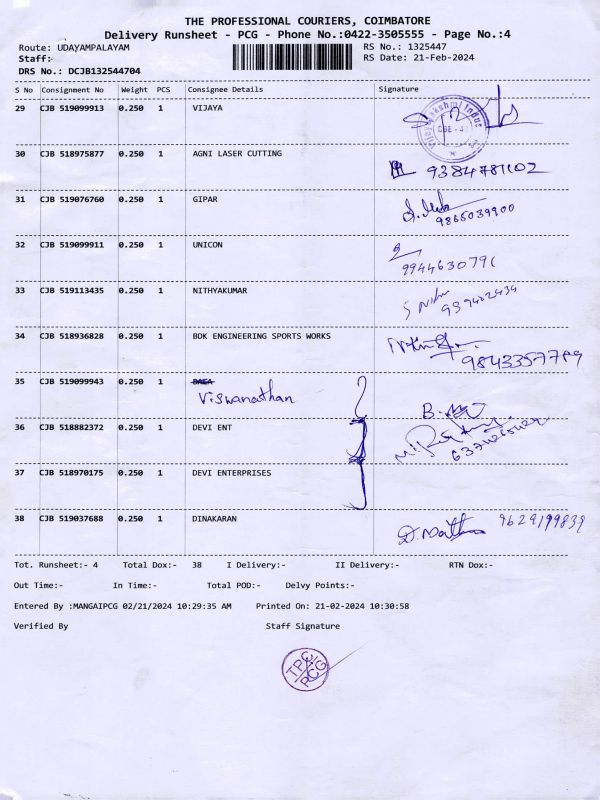 THE PROFESSIONAL COURIERS, COIMBATORE
Delivery Runsheet - PCG - Phone No.:0422-3505555 - Page No.:4
Route: UDAYAMPALAYAM RS No.: 1325447
Staff:- RS Date: 21-Feb-2024
DRS No.: DCJB132544704
S No Consignment No Weight PCS Consignee Details Signature
29 CJB 519099913 0.250 1 VIJAYA
30 CJB 518975877 0.250 1 AGNI LASER CUTTING
9384781102
31 CJB 519076760 0.250 1 GIPAR
9865039900
32 CJB 519099911 0.250 1 UNICON
9944630791
33 CJB 519113435 0.250 1 NITHYAKUMAR
34 CJB 518936828 0.250 1 BDK ENGINEERING SPORTS WORKS
9843357789
35 CJB 519099943 0.250 1
Viswanathan
36 CJB 518882372 0.250 1 DEVI ENT
37 CJB 518970175 0.250 1 DEVI ENTERPRISES
38 CJB 519037688 0.250 1 DINAKARAN
9629199839
Tot. Runsheet:- 4 Total Dox:- 38 I Delivery:- II Delivery:- RTN Dox:-
Out Time:- In Time:- Total POD:- Delvy Points:-
Entered By :MANGAIPCG 02/21/2024 10:29:35 AM Printed On: 21-02-2024 10:30:58
Verified By Staff Signature
TPC
PCG